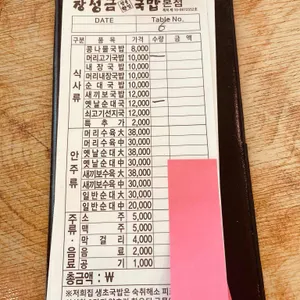 장성금 국밥 본점
DATE Table No.
6
구분 품목 가격 수량 금액
식사류
콩나물국밥 8,000
머리고기국밥 10,000
내장국밥 10,000
순대국밥 10,000
새끼보국밥 12,000
옛날순대국 12,000
쇠고기선지국 10,000
특추가 2,000
안주류
머리수육大 38,000
머리수육中 30,000
옛날순대大 38,000
옛날순대中 30,000
새끼보수육大 38,000
새끼보수육中 30,000
일반순대大 30,000
일반순대中 20,000
주류·음료
소주 5,000
맥주 5,000
막걸리 4,000
음료 2,000
공기 1,000
총금액 : ₩
※저희집 생초국밥은 숙취해소 피